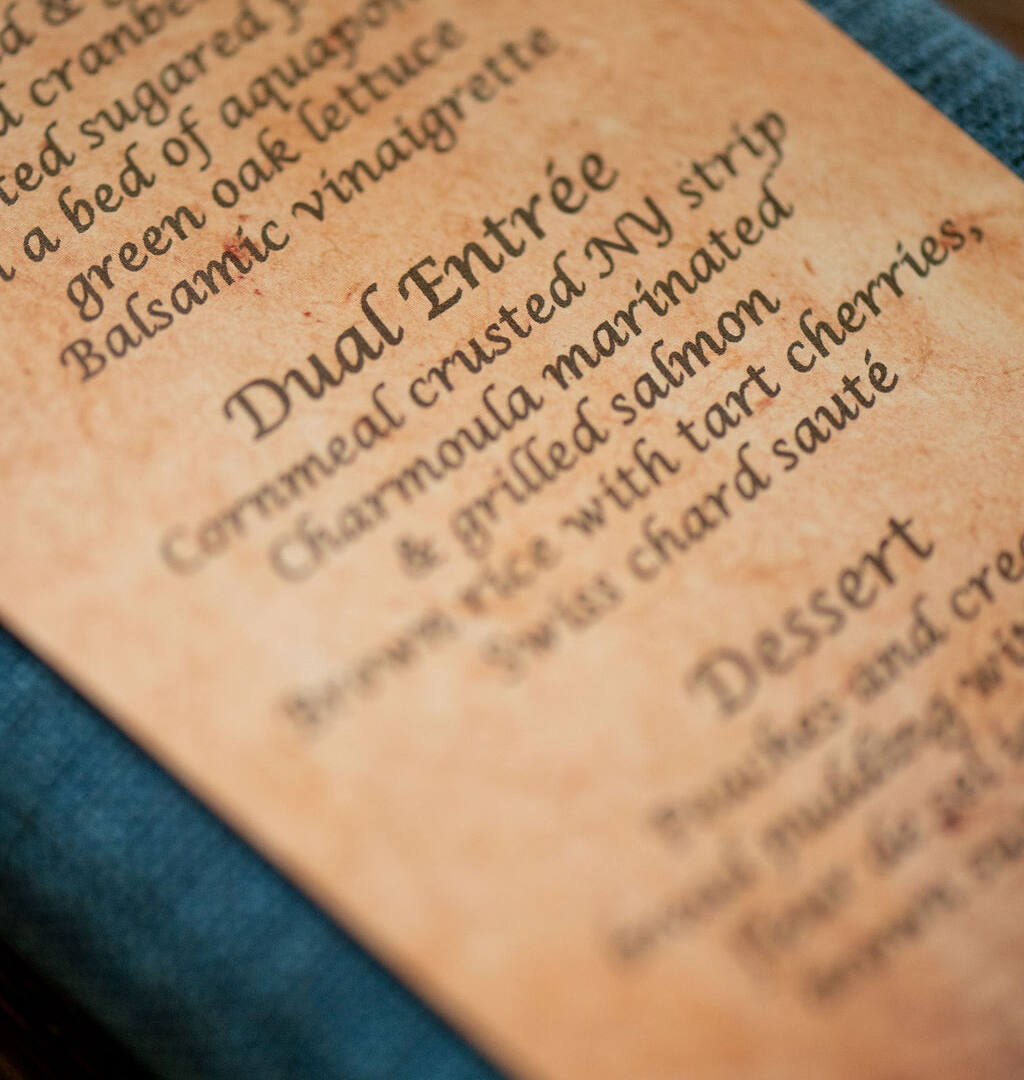 cranbe
sugared
a bed of aquapon
green oak lettuce
Balsamic vinaigrette
Dual Entrée
Cornmeal crusted NY strip
Charmoula marinated
& grilled salmon
Brown rice with tart cherries,
Swiss chard sauté
Dessert
Peaches and crea
bread pudding wi